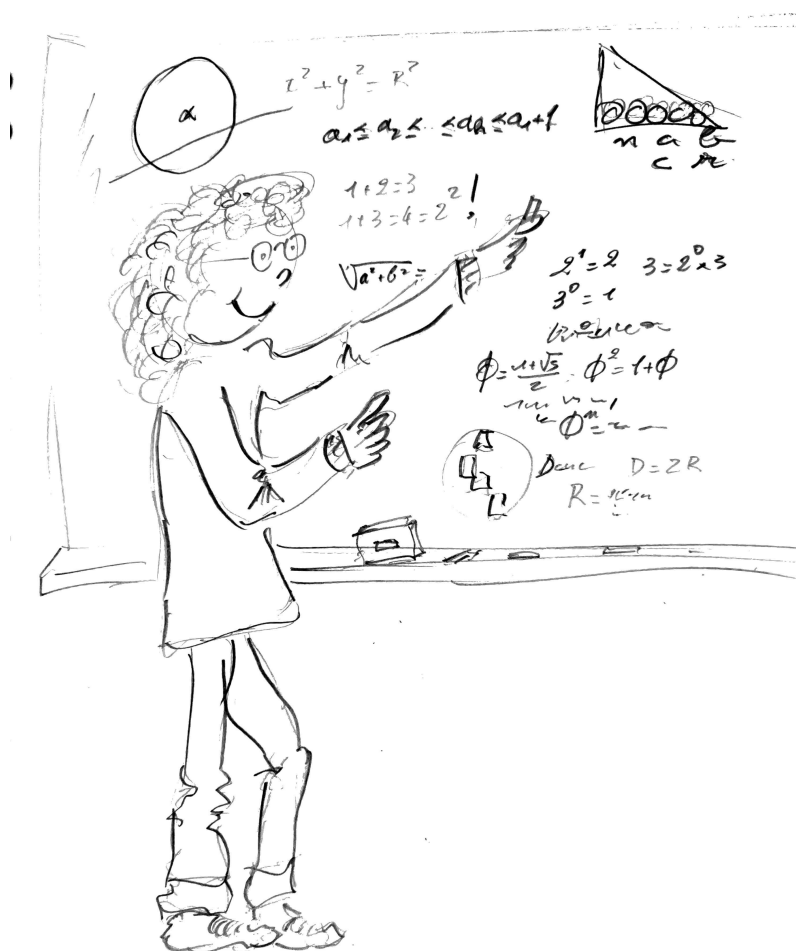 α
x² + y² = R²
a₁ ≤ a₂ ≤ .. ≤ aₙ ≤ a₁+1
n a b
c r
1+2=3
1+3=4=2² !
√a²+b² =
2¹=2 3=2⁰x3
3⁰=1
ϕ=1+√5/2 . ϕ²=1+ϕ
ϕⁿ=
Donc D=2R
R=